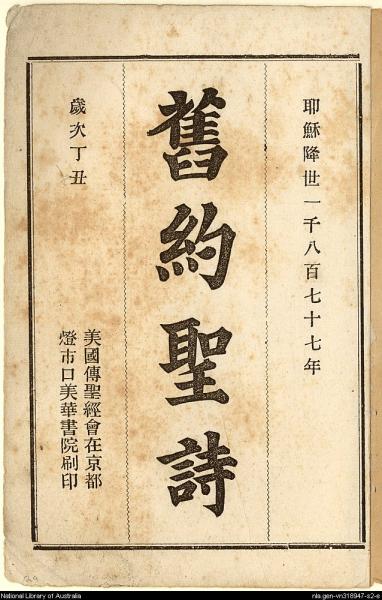 耶穌降世一千八百七十七年
舊約聖詩
歲次丁丑
美國傳聖經會在京都
燈市口美華書院刷印
National Library of Australia
nla.gen-vn316947-s2-e